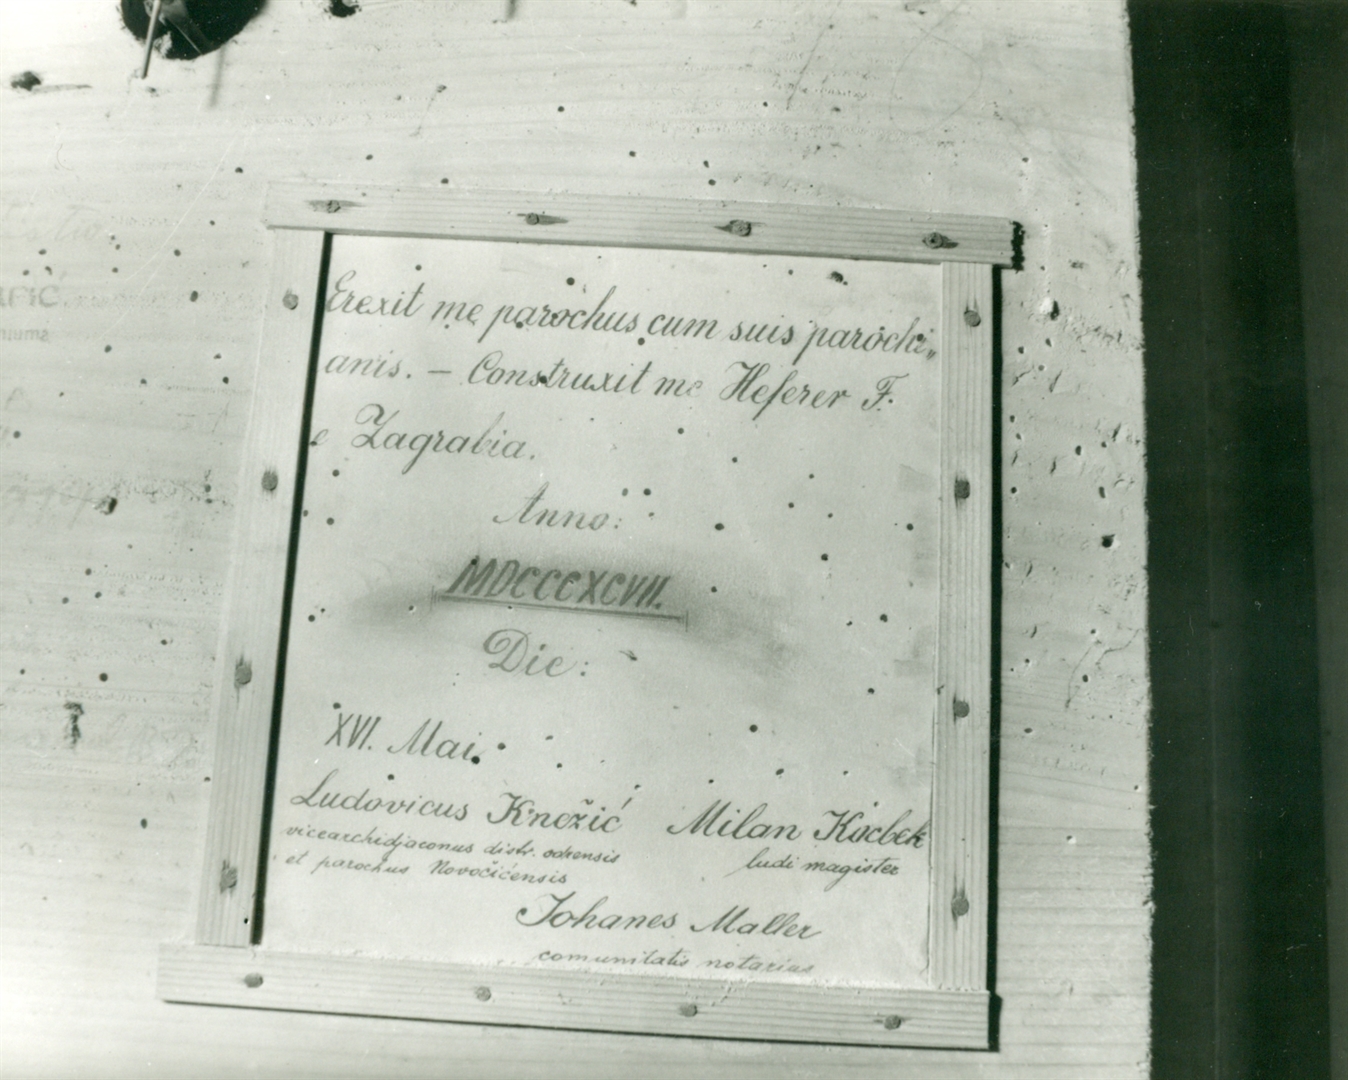 Erexit me parochus cum suis parochi„
anis. – Construxit me Heferer F.
e Zagrabia.
Anno:
MDCCCXCVII.
Die:
XVI. Mai.
Ludovicus Knežić
vicearchidjaconus distr. odrensis
et parochus Novočićensis
Milan Kocbek
ludi magister
Johanes Maller
comunitatis notarius